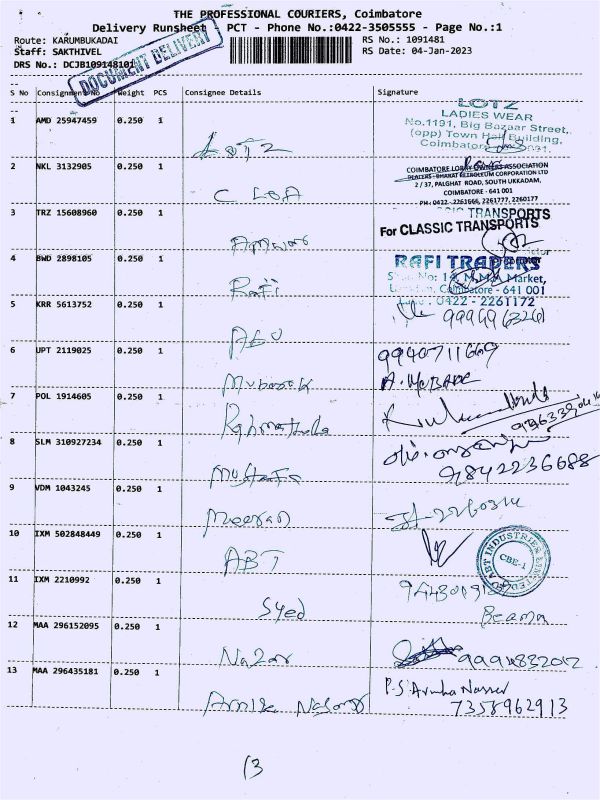 THE PROFESSIONAL COURIERS, Coimbatore
Delivery Runsheet PCT - Phone No.:0422-3505555 - Page No.:1
Route: KARUMBUKADAI RS No.: 1091481
Staff: SAKTHIVEL RS Date: 04-Jan-2023
DRS No.: DCJB109148101
DOCUMENT DELIVERY
S No Consignment No Weight PCS Consignee Details Signature
1 AMD 25947459 0.250 1 LOTZ
LOTZ
LADIES WEAR
No.1191, Big Bazaar Street,
(opp) Town Hall Building,
Coimbatore
2 NKL 3132905 0.250 1 C LOA
COIMBATORE LORRY OWNERS ASSOCIATION
DEALERS - BHARAT PETROLEUM CORPORATION LTD
2 / 37, PALGHAT ROAD, SOUTH UKKADAM,
COIMBATORE - 641 001
PH: 0422 - 2261666, 2261777, 2260177
3 TRZ 15608960 0.250 1
TRANSPORTS
For CLASSIC TRANSPORTS
4 BWD 2898105 0.250 1 Rafi
RAFI TRADERS
Market,
Coimbatore - 641 001
0422 - 2261172
5 KRR 5613752 0.250 1
6 UPT 2119025 0.250 1 Mubarak
9940711669
7 POL 1914605 0.250 1
8 SLM 310927234 0.250 1
9842236688
9 VDM 1043245 0.250 1 Meeran
10 IXM 502848449 0.250 1 ABT
ABT INDUSTRIES LIMITED
CBE-1
11 IXM 2210992 0.250 1 Syed
12 MAA 296152095 0.250 1 Nazar
13 MAA 296435181 0.250 1
7358962913
13